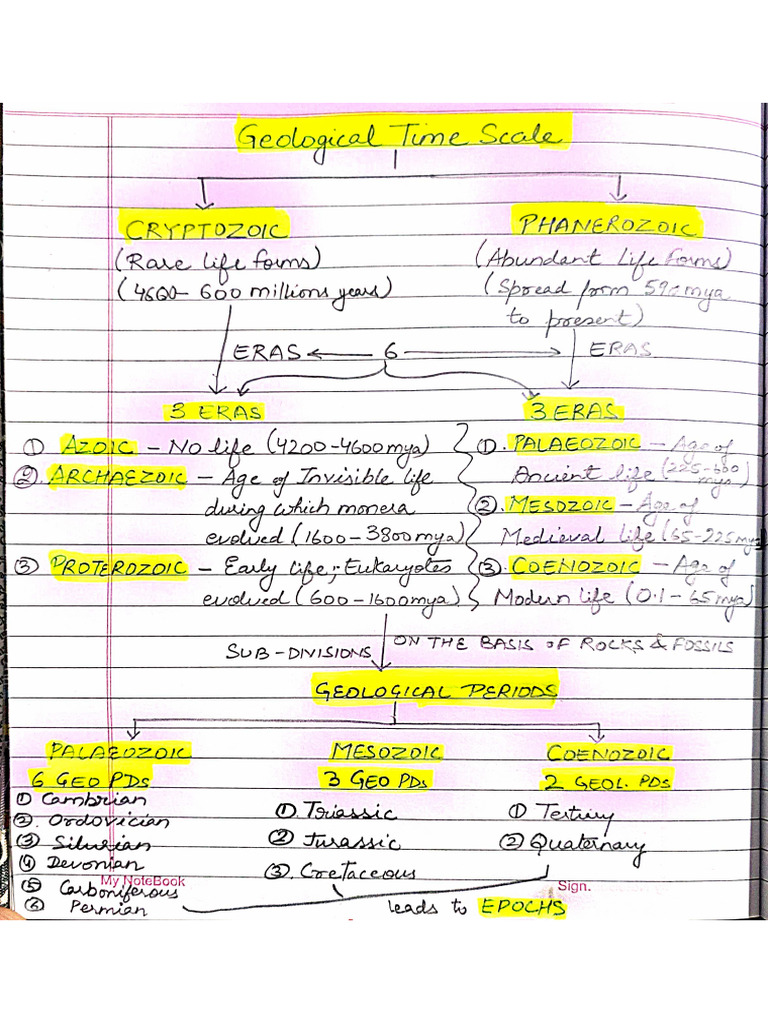 Geological Time Scale
CRYPTOZOIC
PHANEROZOIC
(Rare life forms)
(Abundant Life Forms)
(4600- 600 millions years)
(Spread from 590 mya
to present)
ERAS ← 6 → ERAS
3 ERAS
3 ERAS
① AZOIC – No life (4200-4600mya)
② ARCHAEZOIC – Age of Invisible life
during which monera
evolved (1600-3800mya)
③ PROTEROZOIC – Early life, Eukaryotes
evolved (600-1600mya)
①. PALAEOZOIC – Age of
Ancient life (225-600
mya)
②. MESOZOIC – Age of
Medieval life (65-225mya)
③. COENOZOIC – Age of
Modern life (0.1-65mya)
SUB-DIVISIONS ON THE BASIS OF ROCKS & FOSSILS
GEOLOGICAL PERIODS
PALAEOZOIC
6 GEO PDs
① Cambrian
②. Ordovician
③ Silurian
④ Devonian
⑤ Carboniferous
⑥ Permian
MESOZOIC
3 GEO PDs
① Triassic
② Jurassic
③. Cretaceous
COENOZOIC
2 GEOL. PDs
① Tertiary
② Quaternary
My NoteBook
Sign.
leads to EPOCHS